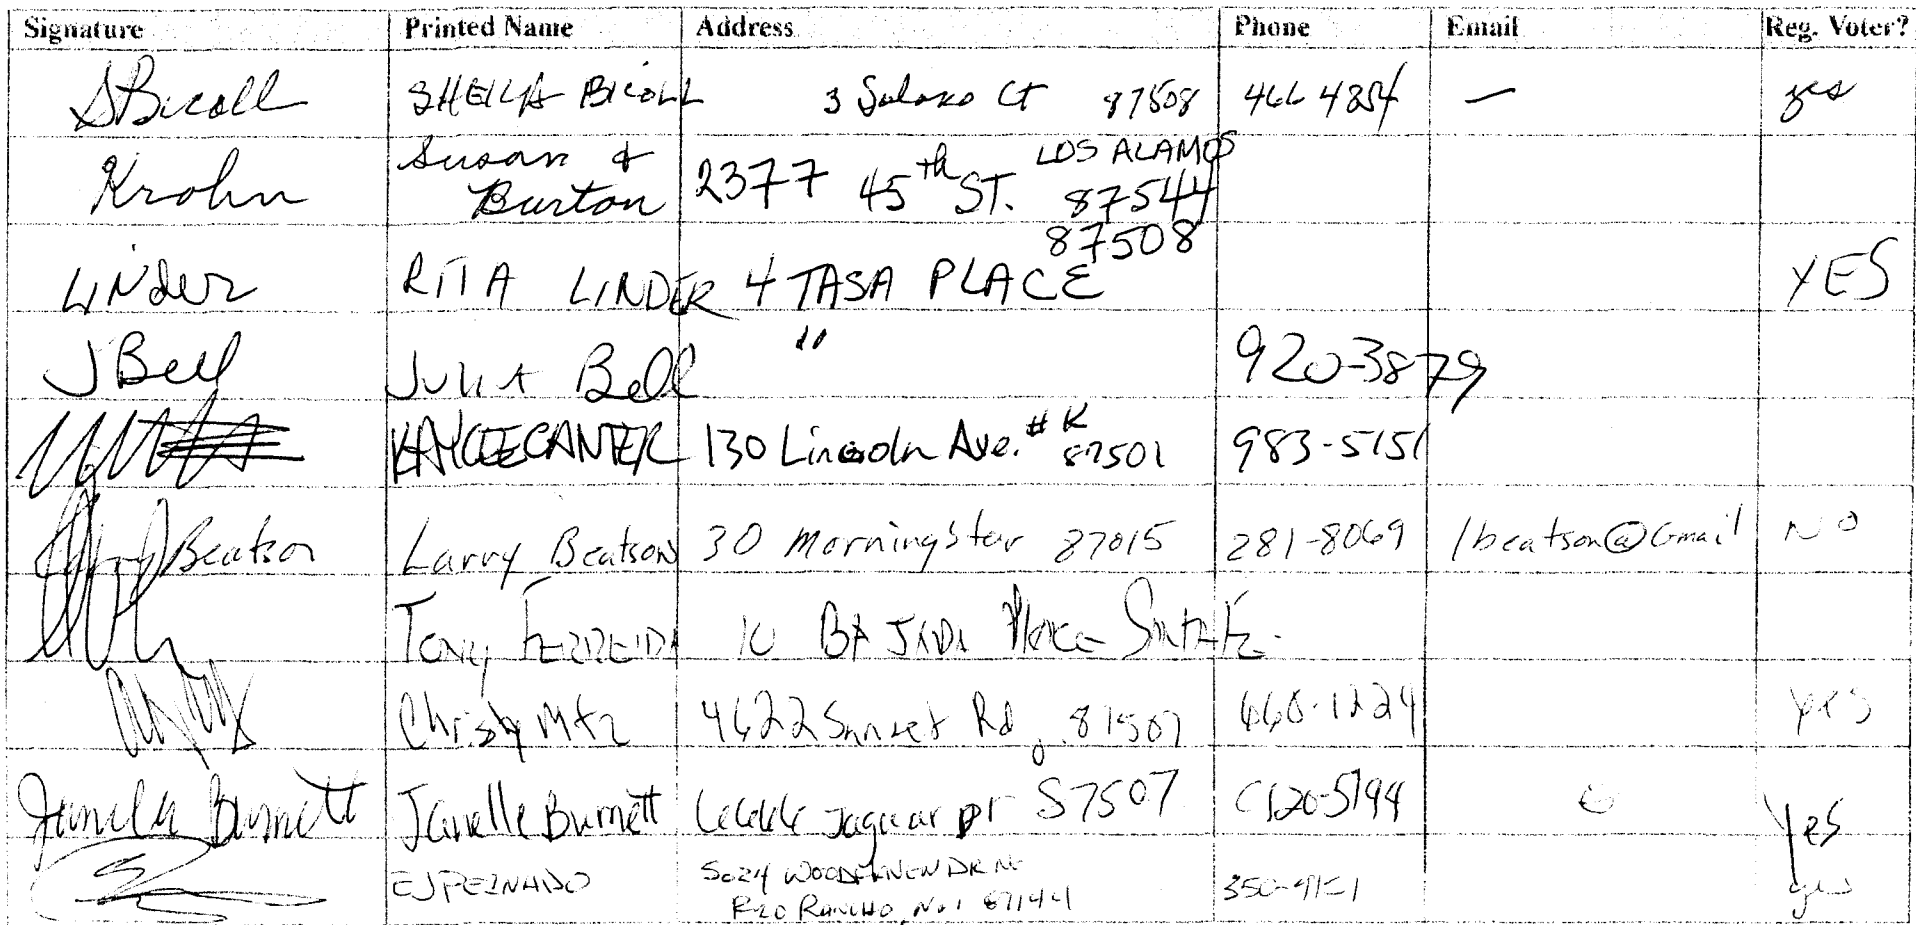 Signature Printed Name Address Phone Email Reg. Voter?
SBicoll SHEILA BICOLL 3 Solano Ct 87508 466 4254 — yes
Krohn Susan & Burton 2377 45th ST. LOS ALAMOS 87544
Linder RITA LINDER 4 TASA PLACE 87508 YES
JBell Julia Bell " 920-3879
KAYCEE CANTER 130 Lincoln Ave. #K 87501 983-5151
Beatson Larry Beatson 30 Morningstar 87015 281-8069 lbeatson@Gmail NO
Tony 10 BAJADA Place Santa Fe
Christy Mtz 4622 Sunset Rd, 87507 660-1224 yes
Janelle Burnett Janelle Burnett 6666 Jaguar Dr 87507 920-5794 Yes
EJ 5024 DR NE
RIO RANCHO, 87144 yes